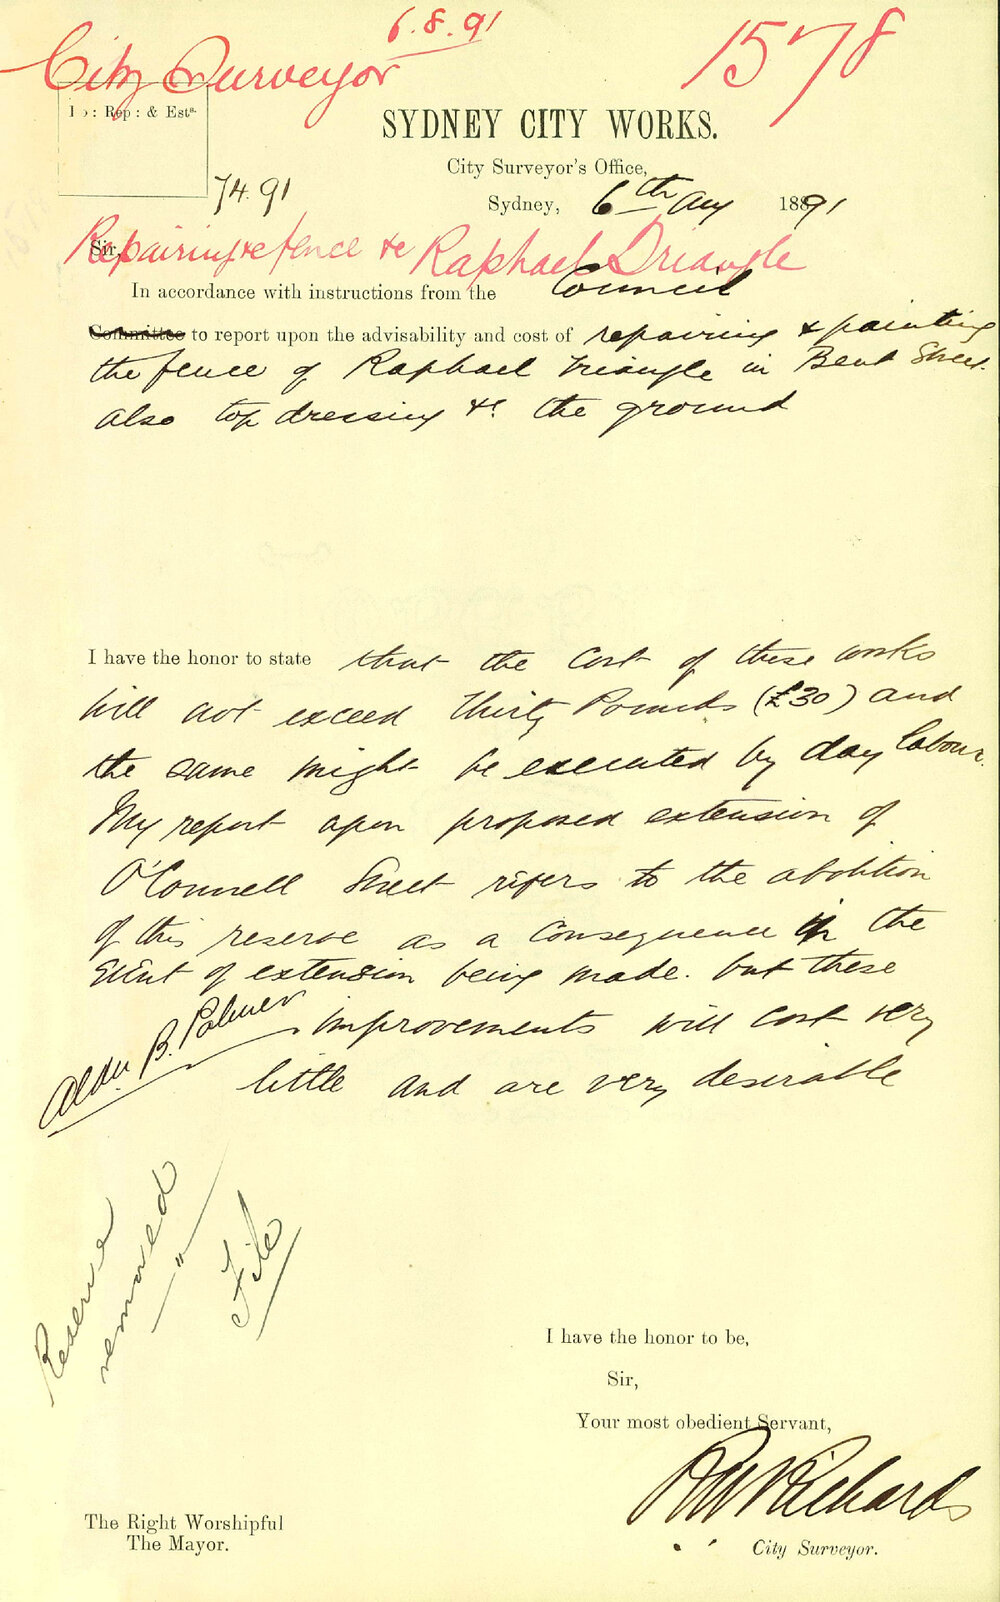 6.8.91
City Surveyor
1578
: Rep : & Ests.
SYDNEY CITY WORKS.
City Surveyor's Office,
74.91
Sydney, 6th Aug 1891
Repairing &c fence &c Raphael Triangle
Sir,
In accordance with instructions from the Council
Committee to report upon the advisability and cost of repairing & painting
the fence of Raphael Triangle in Bent Street.
also top dressing &c the ground
I have the honor to state that the cost of these works
will not exceed Thirty Pounds (£30) and
the same might be executed by day labour.
My report upon proposed extension of
O'Connell Street refers to the abolition
of this reserve as a consequence in the
event of extension being made. but these
improvements will cost very
little and are very desirable
Aldn B. Palmer
Reserve
removed
File
I have the honor to be,
Sir,
Your most obedient Servant,
RWRichards
City Surveyor.
The Right Worshipful
The Mayor.